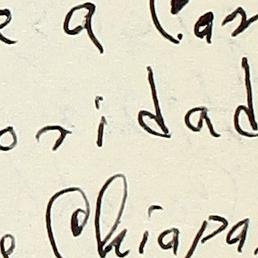 e a Car
oridad
e Chiapa